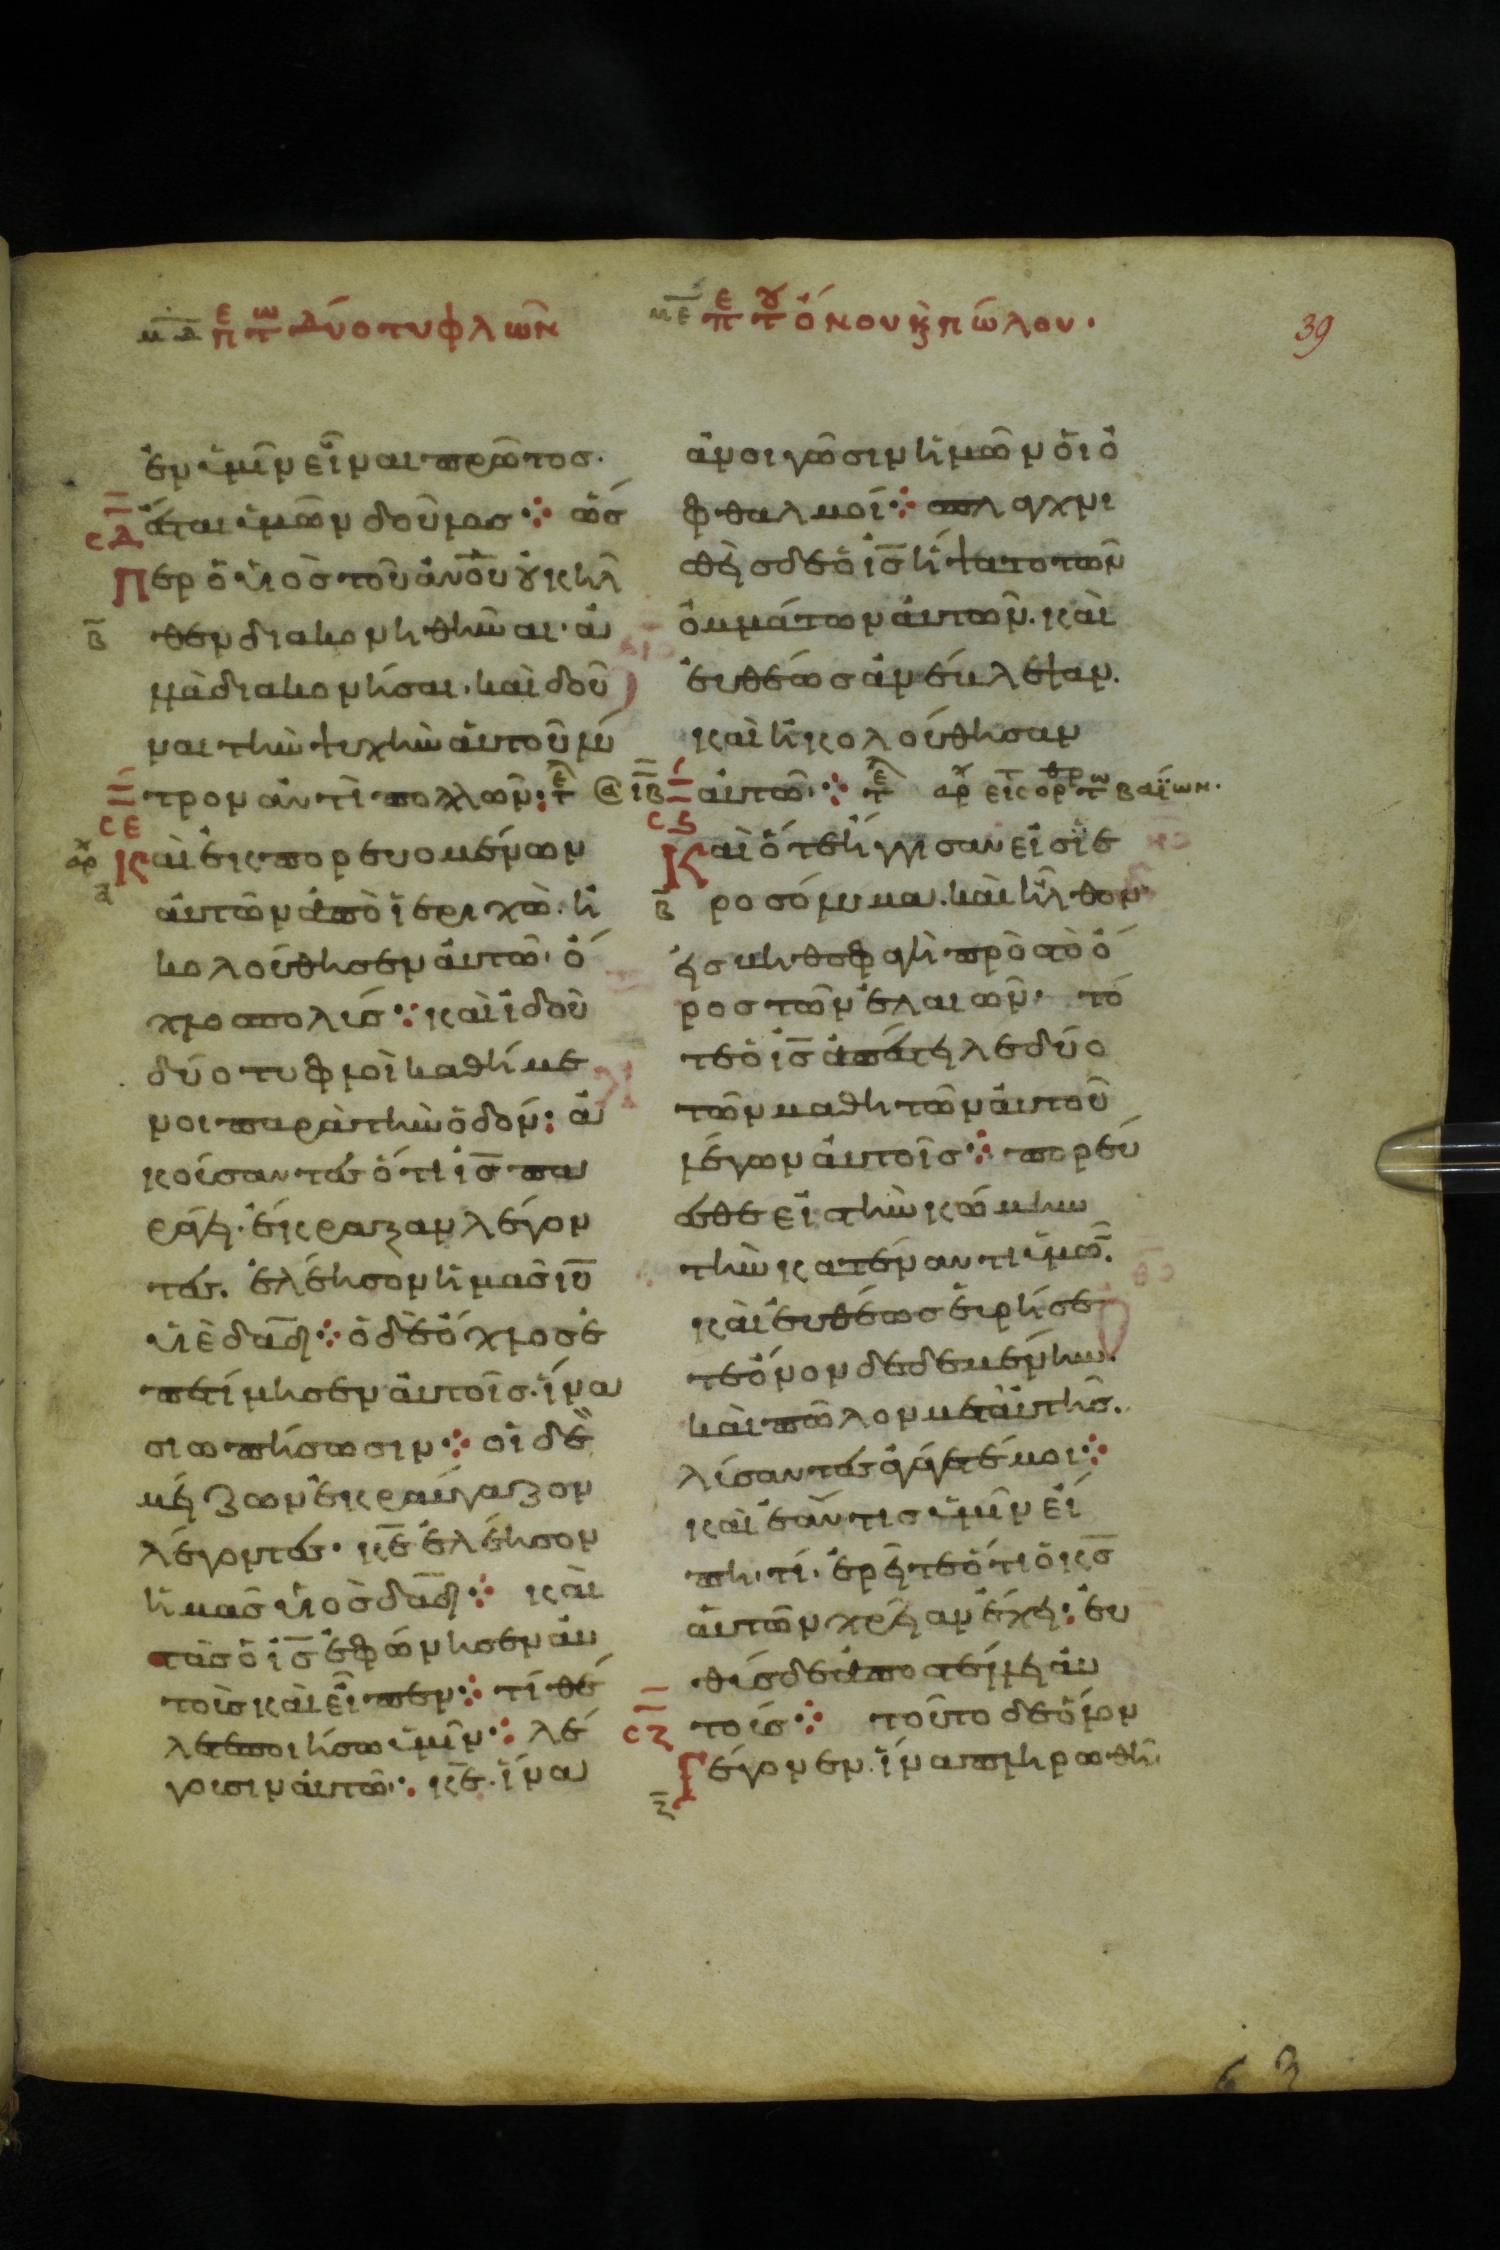 μδ περὶ τῶν δύο τυφλῶν
με περὶ τοῦ ὄνου καὶ πώλου.
39
ἐν ὑμῖν εἶναι πρῶτος.
ἔσται ὑμῶν δοῦλος· ὥσ
σδ
περ ὁ υἱὸς τοῦ ἀνου οὐκ ἦλ
β
θεν διακονηθῆναι· ἀλ
λὰ διακονῆσαι. καὶ δοῦ
ναι τὴν ψυχὴν αὐτοῦ λύ
τρον ἀντὶ πολλῶν:
σε
καὶ ἐκπορευομένων
αὐτῶν ἀπὸ ἱεριχὼ. ἠ
κολούθησεν αὐτῶ· ὄ
χλος πολύς· καὶ ἰδοὺ
δύο τυφλοὶ καθήμε
νοι παρὰ τὴν ὁδόν: ἀ
κούσαντες ὅτι ις πα
ράγει. ἔκραξαν λέγον
τες. ἐλέησον ἡμᾶς ιυ
υἱὲ δαδ· ὁ δὲ ὄχλος ἐ
πετίμησεν αὐτοῖς. ἵνα
σιωπήσωσιν· οἱ δὲ
μείζων ἐκραύγαζον
λέγοντες· κε ἐλέησον
ἡμᾶς υἱὸς δαδ· καὶ
στὰς ὁ ις ἐφώνησεν αὐ
τοὺς καὶ εἶπεν· τί θέ
λετε ποιήσω ὑμῖν· λέ
γουσιν αὐτῶ· κε. ἵνα
ἀνοιγῶσιν ἡμῶν ὁι ὀ
φθαλμοί· σπλαγχνι
σθεὶς δὲ ὁ ις ἥψατο τῶν
ὀμμάτων αὐτῶν. καὶ
ἐυθέως ἀνέβλεψαν.
καὶ ἠκολούθησαν
ιβ αὐτῶ· βαΐων.
σς
Καὶ ὅτε ἤγγισαν εἰς ἱε
β
ροσόλυμα. καὶ ἦλθον
εἰς βηθσφαγὴ πρὸς τὸ ὄ
ρος τῶν ἐλαιῶν· τό
τε ὁ ις ἀπέστειλε δύο
τῶν μαθητῶν αὐτοῦ
λέγων αὐτοῖς· πορεύ
εσθε εἰς τὴν κώμην
τὴν κατέναντι ὑμῶν.
καὶ ἐυθέως ἑυρήσε
τε ὄνον δεδεμένην.
καὶ πῶλον μετ' αὐτῆς.
λύσαντες ἀγάγετέ μοι·
καὶ ἐάν τις ὑμῖν εἴ
πη. τί. ἐρεῖτε ὅτι ὁ κς
αὐτῶν χρείαν ἔχει: ἐυ
θὺς δὲ ἀποστέλλει αὐ
τούς· τοῦτο δὲ ὅλον
σζ
Γέγονεν. ἵνα πληρωθῆ
ζ